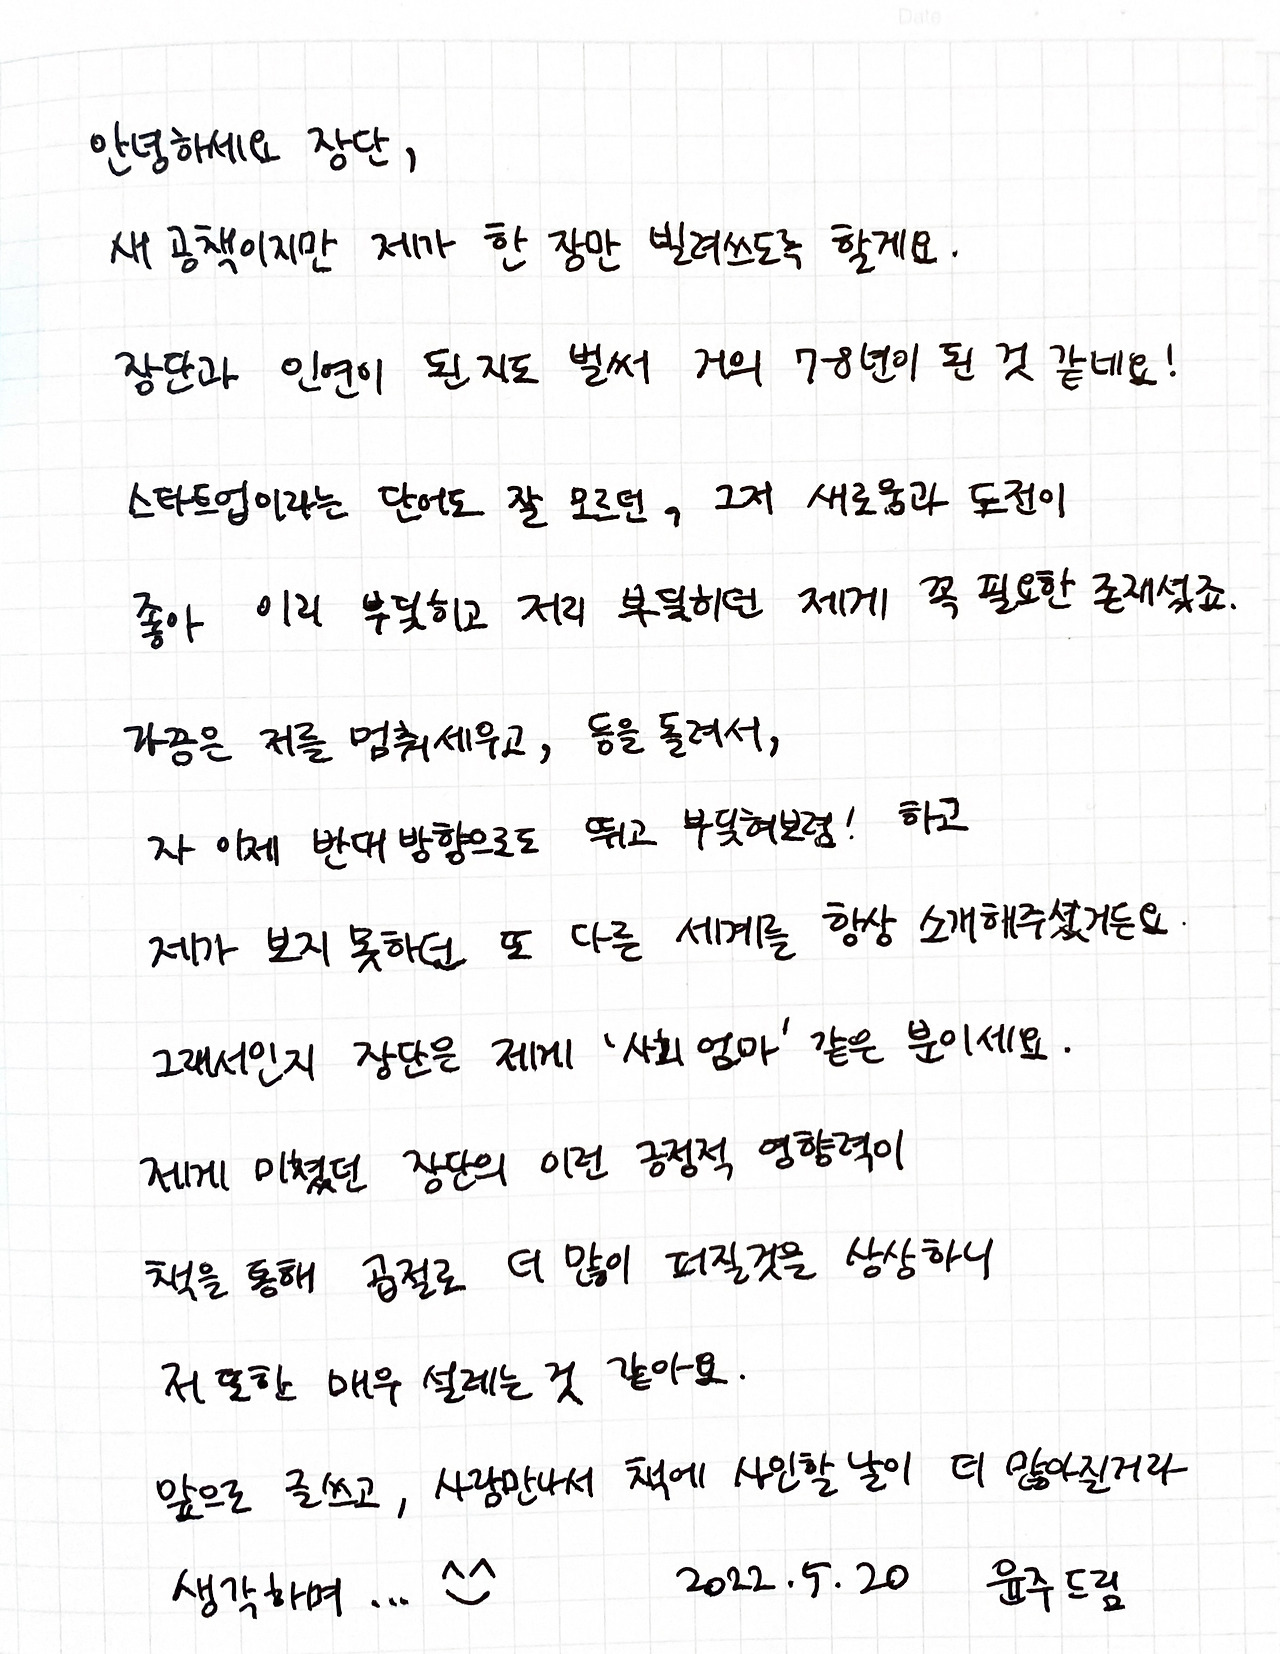 Date
안녕하세요 장단,
새 공책이지만 제가 한 장만 빌려쓰도록 할게요.
장단과 인연이 된지도 벌써 거의 7-8년이 된 것 같네요!
스타트업이라는 단어도 잘 모르던, 그저 새로움과 도전이
좋아 이리 부딪히고 저리 부딪히던 제게 꼭 필요한 존재셨죠.
가끔은 저를 멈춰세우고, 등을 돌려서,
자 이제 반대 방향으로도 뛰고 부딪혀보렴! 하고
제가 보지 못하던 또 다른 세계를 항상 소개해주셨거든요.
그래서인지 장단은 제게 '사회 엄마' 같은 분이세요.
제게 미쳤던 장단의 이런 긍정적 영향력이
책을 통해 곱절로 더 많이 퍼질것을 상상하니
저 또한 매우 설레는 것 같아요.
앞으로 글쓰고, 사랑만나서 책에 사인할 날이 더 많아질거라
생각하며... ^^
2022.5.20 윤주드림